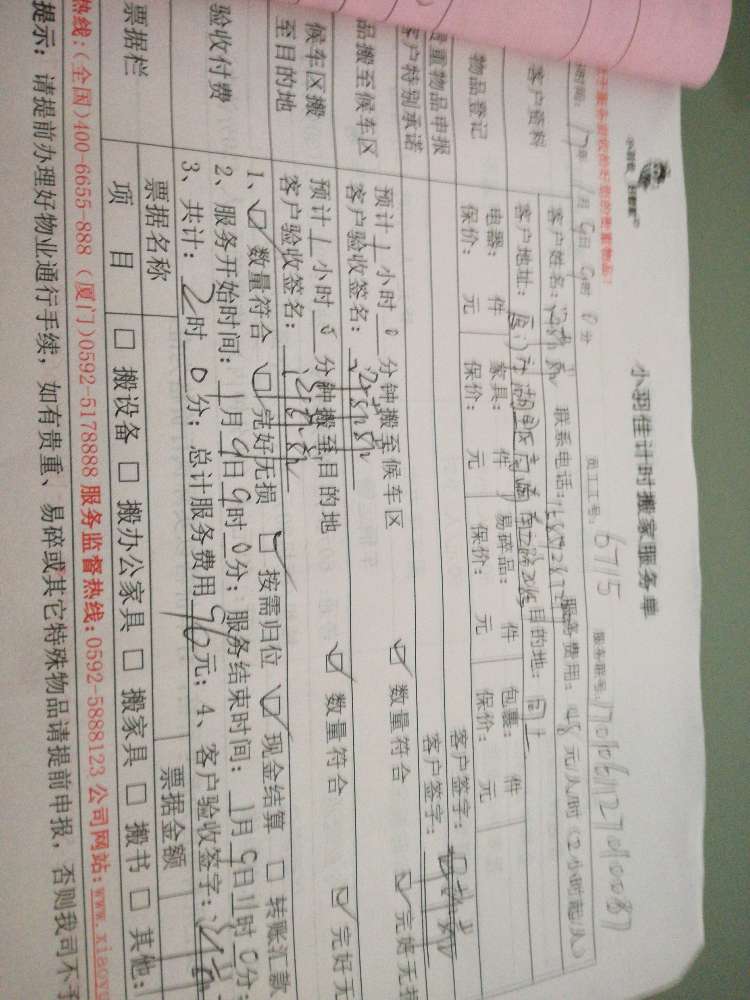 小羽佳计时搬家服务单
小羽佳
员工工号: 6715 服务账号:
17年1月9日9时0分
客户资料
客户姓名: 联系电话: 服务费用: 48元/人/时 (2小时起/人)
客户地址: 目的地: 同上
物品登记
电器: 件 家具: 件 易碎品: 件 包裹: 件
保价: 元 保价: 元 保价: 元 保价: 元
贵重物品申报
客户签字:
客户特别承诺
客户签字:
品搬至候车区
预计1小时0分钟搬至候车区 ☑数量符合 ☑完好无损
客户验收签名:
候车区搬
至目的地
预计1小时0分钟搬至目的地 ☑数量符合 ☑完好无
客户验收签名:
验收付费
1、☑数量符合 ☑完好无损 ☑按需归位 ☑现金结算 □转账汇款
2、服务开始时间: 1月9日9时0分; 服务结束时间: 1月9日11时0分;
3、共计: 2时0分; 总计服务费用96元; 4、客户验收签字:
票据栏
票据名称 票据金额
项目 □搬设备 □搬办公家具 □搬家具 □搬书 □其他:
热线:(全国)400-6655-888 (厦门)0592-5178888 服务监督热线:0592-5888123 公司网站:www.xiaoyu
提示: 请提前办理好物业通行手续, 如有贵重、易碎或其它特殊物品请提前申报, 否则我司不予